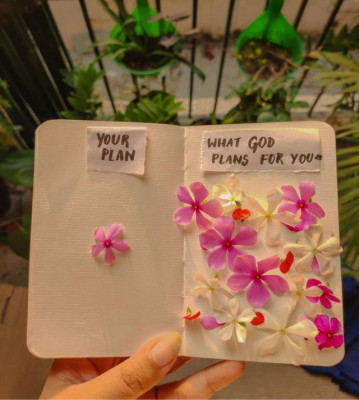 YOUR
PLAN
WHAT GOD
PLANS FOR YOU